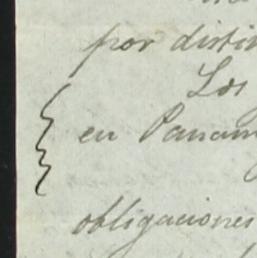 por distin
Los
en Panam
obligaciones